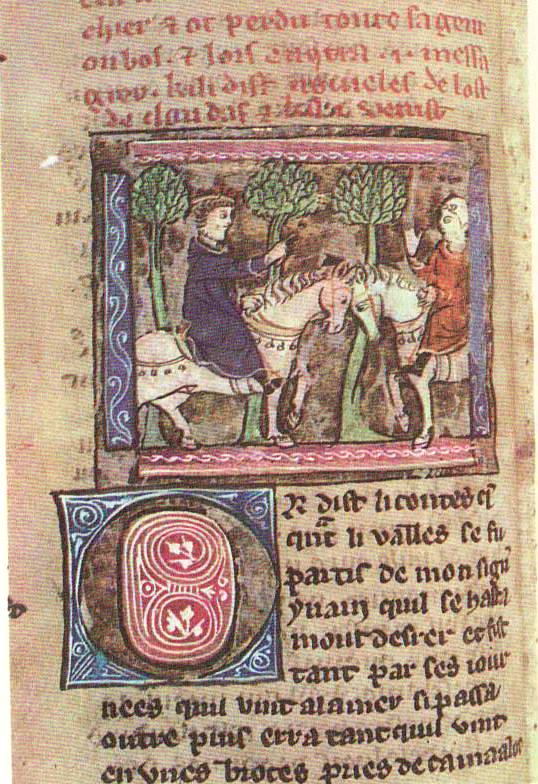 chier ⁊ ot perdu toute sa gent
on bos. ⁊ lors .i. messa
gier. ki li dist nouueles de lost
de claudas ⁊ venist
OR dist li contes q̃
quãt li valles se fu
partis de monsign̄
yuain quil se hasta
mout desrer et fist
tant par ses iour
nees quil vint a la mer si passa
outre puis erra tant quil vint
en vnes broces pries de camaalot